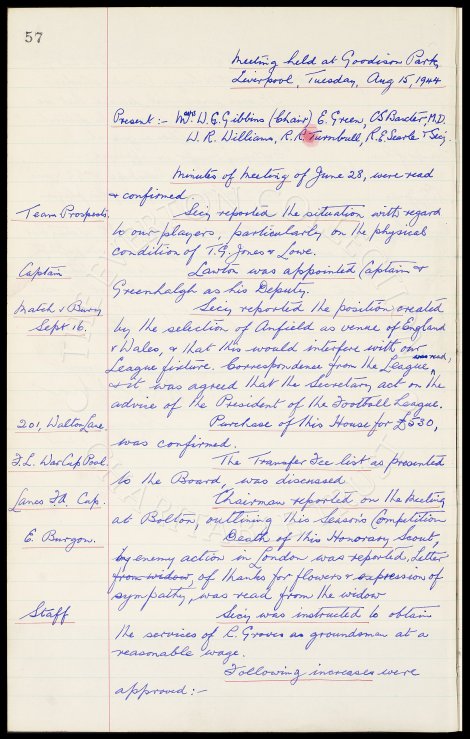 57
Meeting held at Goodison Park,
Liverpool, Tuesday, Aug 15, 1944
Present :- Messrs W.G. Gibbins (Chair) E. Green, C.S. Baxter, M.D.
W. R. Williams, R.R. Turnbull, R.E. Searle & Secy.
Minutes of Meeting of June 28, were read
& confirmed.
Team Prospects. Secy reported the situation with regard
to our players, particularly on the physical
condition of T.G. Jones & Lowe.
Captain Lawton was appointed Captain &
Greenhalgh as his Deputy.
Match v Bury Secy reported the position created
Sept 16. by the selection of Anfield as venue of England
v Wales, & that this would interfere with our
League fixture. Correspondence from the League was read,
& it was agreed that the Secretary act on the
advice of the President of the Football League.
201, Walton Lane. Purchase of this House for £530,
was confirmed.
F.L. War Cup Pool. The Transfer Fee list as presented
to the Board, was discussed.
Lancs F.A. Cup. Chairman reported on the Meeting
at Bolton, outlining this Season's Competition
E. Burgon. Death of this Honorary Scout,
by enemy action in London was reported. Letter
from widow, of thanks for flowers & expression of
sympathy, was read from the widow
Staff Secy was instructed to obtain
the services of C. Groves as groundsman at a
reasonable wage.
Following increases were
approved :-